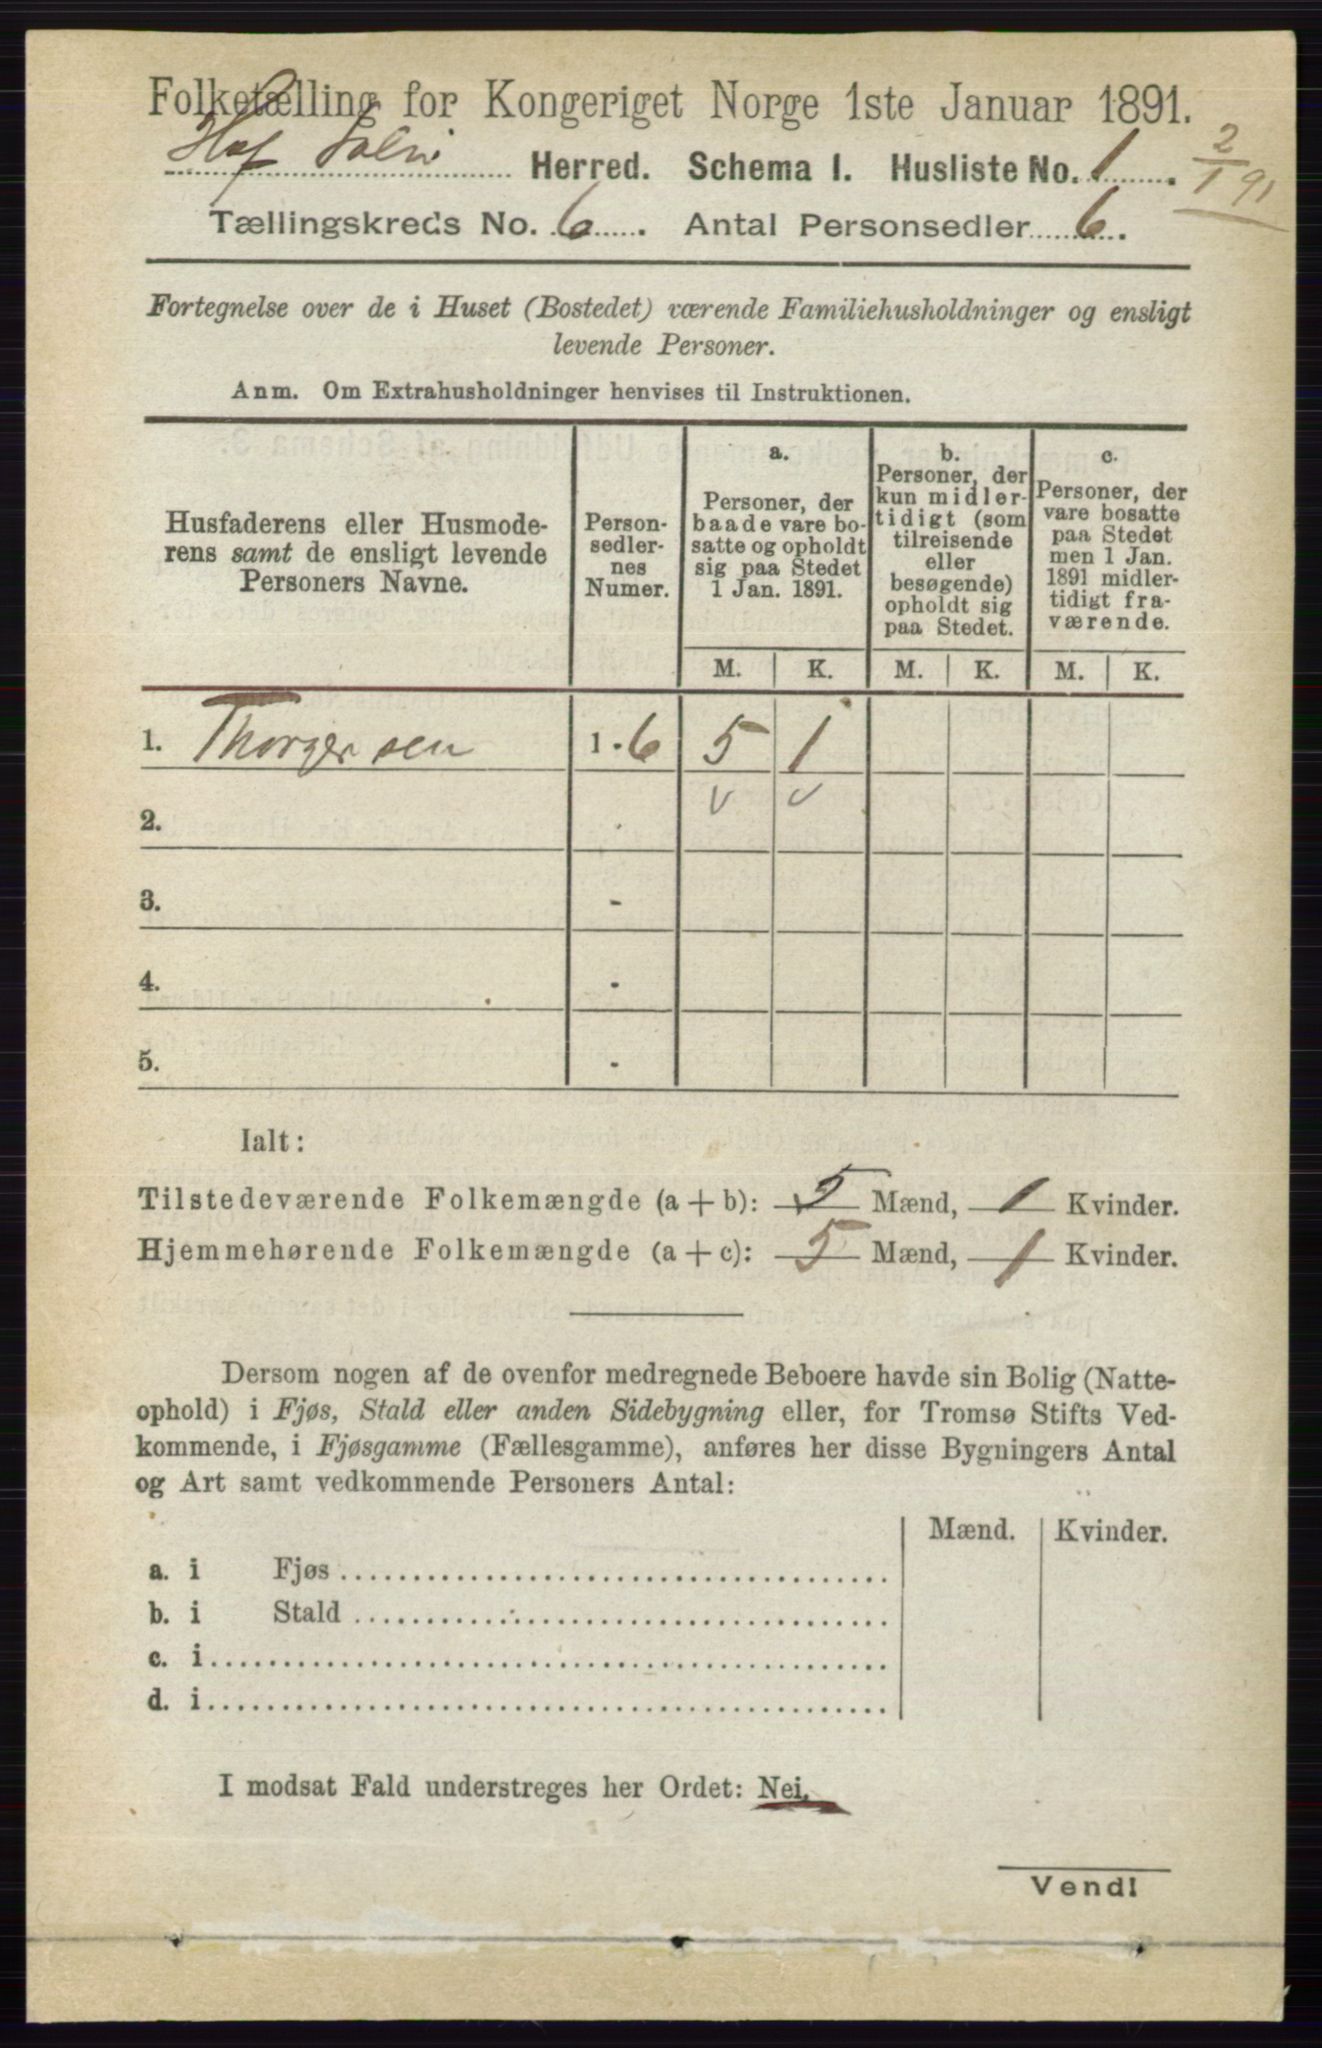 Folketælling for Kongeriget Norge 1ste Januar 1891.
Hof Herred. Schema I. Husliste No. 1.
2/1 91
Tællingskreds No. 6. Antal Personsedler 6.
Fortegnelse over de i Huset (Bostedet) værende Familiehusholdninger og ensligt
levende Personer.
Anm. Om Extrahusholdninger henvises til Instruktionen.
Husfaderens eller Husmode-
rens samt de ensligt levende
Personers Navne.
Person-
sedler-
nes
Numer.
a.
Personer, der
baade vare bo-
satte og opholdt
sig paa Stedet
1 Jan. 1891.
b.
Personer, der
kun midler-
tidigt (som
tilreisende
eller
besøgende)
opholdt sig
paa Stedet.
c.
Personer, der
vare bosatte
paa Stedet
men 1 Jan.
1891 midler-
tidigt fra-
værende.
M. K. M. K. M. K.
1. Thorgersen 1 - 6 5 1
2. -
3. -
4. -
5. -
Ialt:
Tilstedeværende Folkemængde (a + b): 5 Mænd, 1 Kvinder.
Hjemmehørende Folkemængde (a + c): 5 Mænd, 1 Kvinder.
Dersom nogen af de ovenfor medregnede Beboere havde sin Bolig (Natte-
ophold) i Fjøs, Stald eller anden Sidebygning eller, for Tromsø Stifts Ved-
kommende, i Fjøsgamme (Fællesgamme), anføres her disse Bygningers Antal
og Art samt vedkommende Personers Antal:
Mænd. Kvinder.
a. i Fjøs
b. i Stald
c. i
d. i
I modsat Fald understreges her Ordet: Nei.
Vend!